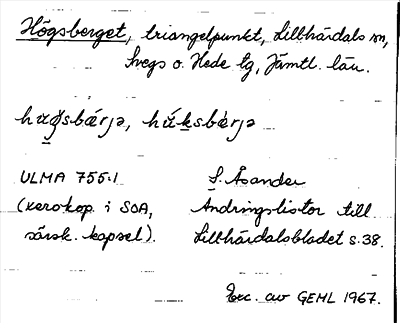 Högsberget, triangelpunkt, Lillhärdals sn,
Svegs o. Hede tg, Jämtl. län.
hu̳g̸sbǽrjə, hú̳ksbærjə
ULMA 755:1
(xerokop. i SOA,
särsk. kapsel).
L. Åsander
Ändringslistor till
Lillhärdalsbladet s. 38.
Exc. av GEHL 1967.